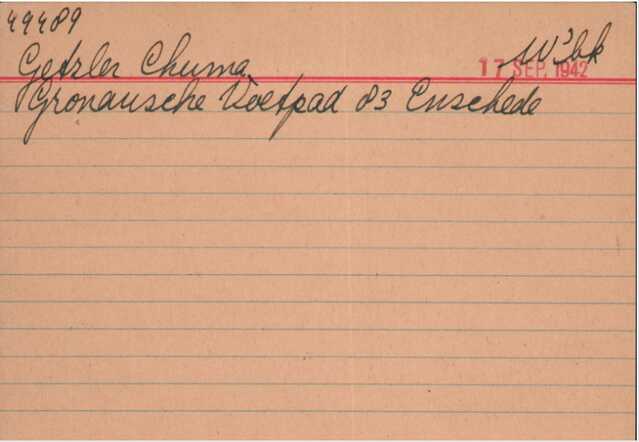 49489
Getzler Chuma W'bk
17 SEP. 1942
Gronausche Voetpad 83 Enschede